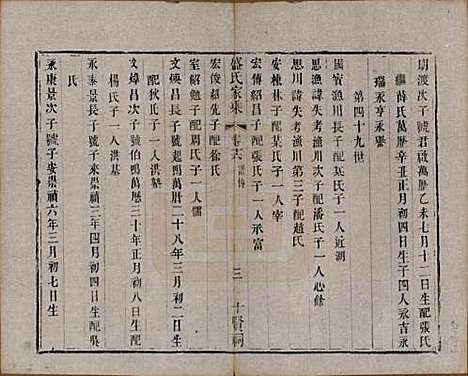 明渡次子號君啟萬曆乙未七月十二日生配張氏
繼薛氏萬曆辛丑正月初六日生子四人永吉永
瑞永亨永張
第四十九世
國賓漁川長子配某氏子一人近湖
思漁諱失考漁川次子配潘氏子一人心餘
思川諱失考漁川第三子配趙氏
安橋林子配某氏子一人宰
宏傳紹昌子配張氏子一人承富
盛氏家乘
卷六
三
十賢祠
宏俊紹先子配徐氏
室紹勉子配周氏子一人儒
文煥昌長子號起鳴萬曆二十八年三月初二日生
配狄氏子一人洪塾
文煒昌次子號伯鳴萬曆三十年正月初八日生配
楊氏子一人洪基
永泰景長子號子來崇禎三年四月初四日生配吳
氏
永康景次子號子安崇禎六年三月初七日生